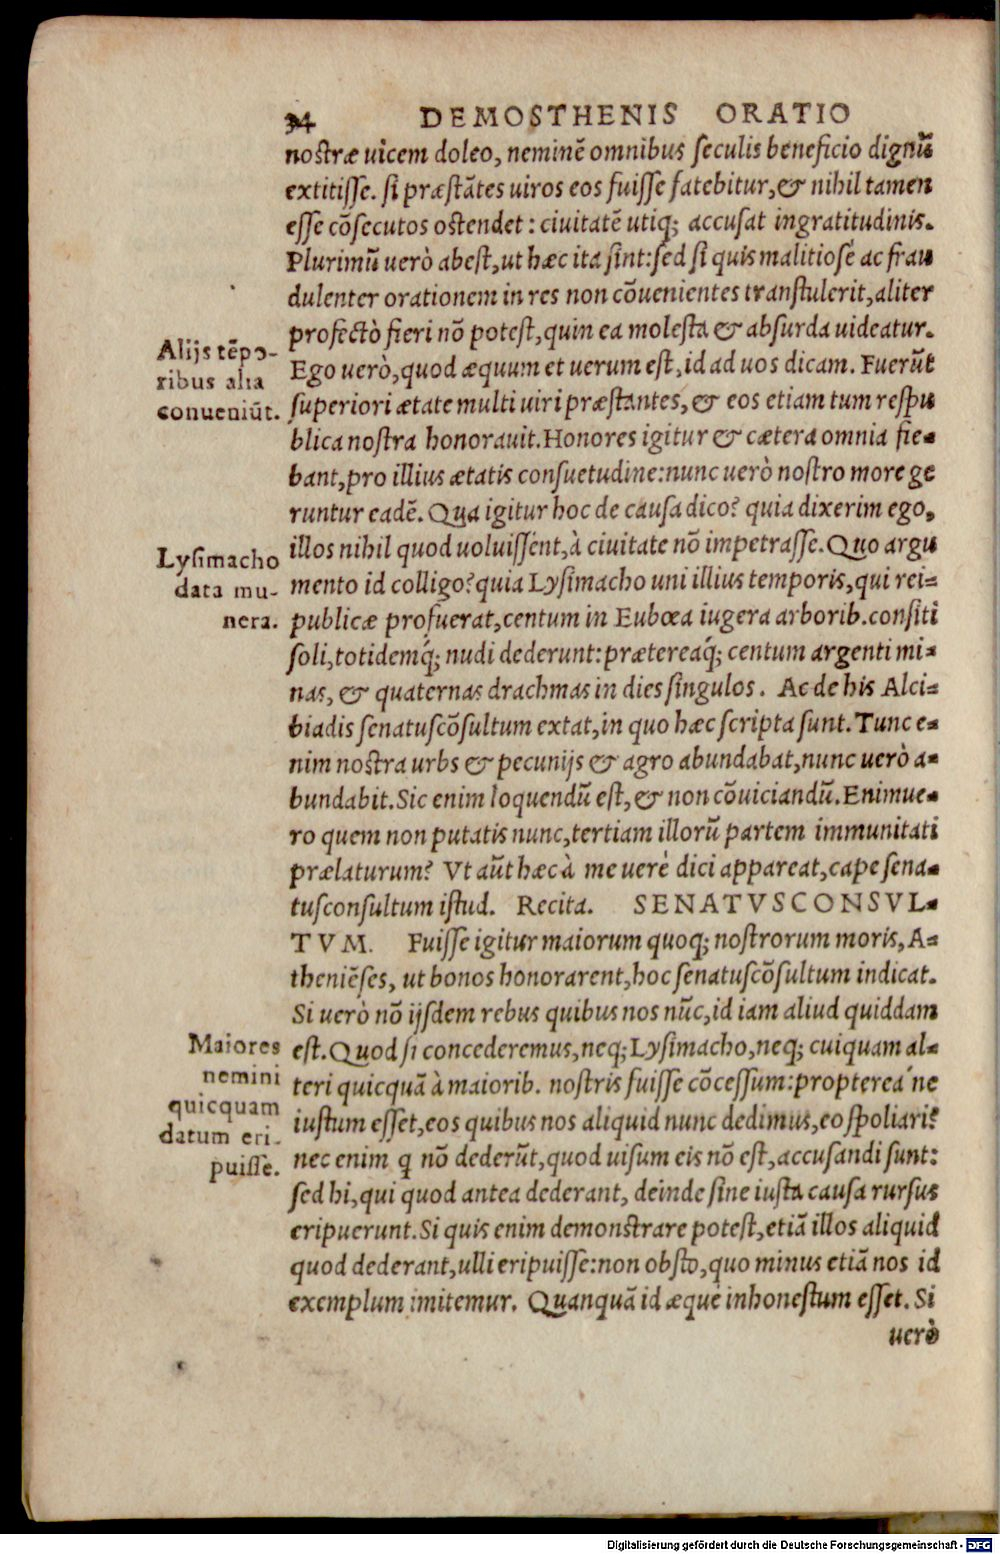 34 DEMOSTHENIS ORATIO
nostræ uicem doleo, neminẽ omnibus seculis beneficio dignũ
extitisse. si præstãtes uiros eos fuisse fatebitur, & nihil tamen
esse cõsecutos ostendet: ciuitatẽ utiq; accusat ingratitudinis.
Plurimũ uerò abest, ut hæc ita sint: sed si quis malitiosè ac frau
dulenter orationem in res non cõuenientes transtulerit, aliter
profectò fieri nõ potest, quin ea molesta & absurda uideatur.
Alijs tẽpo-
ribus alia
conueniũt.
Ego uerò, quod æquum et uerum est, id ad uos dicam. Fuerũt
superiori ætate multi uiri præstantes, & eos etiam tum respu
blica nostra honorauit. Honores igitur & cætera omnia fie-
bant, pro illius ætatis consuetudine: nunc uerò nostro more ge
runtur eadẽ. Qua igitur hoc de causa dico? quia dixerim ego,
Lysimacho
data mu-
nera.
illos nihil quod uoluissent, à ciuitate nõ impetrasse. Quo argu
mento id colligo? quia Lysimacho uni illius temporis, qui rei-
publicæ profuerat, centum in Eubœa iugera arborib. consiti
soli, totidemq́; nudi dederunt: prætereaq́; centum argenti mi-
nas, & quaternas drachmas in dies singulos. Ac de his Alci-
biadis senatuscõsultum extat, in quo hæc scripta sunt. Tunc e-
nim nostra urbs & pecunijs & agro abundabat, nunc uerò a-
bundabit. Sic enim loquendũ est, & non cõuiciandũ. Enimue-
ro quem non putatis nunc, tertiam illorũ partem immunitati
prælaturum? Vt aũt hæc à me uerè dici appareat, cape sena-
tusconsultum istud. Recita. SENATVSCONSVL-
TVM. Fuisse igitur maiorum quoq; nostrorum moris, A-
theniẽses, ut bonos honorarent, hoc senatuscõsultum indicat.
Si uerò nõ ijsdem rebus quibus nos nũc, id iam aliud quiddam
Maiores
nemini
quicquam
datum eri-
puisse.
est. Quod si concederemus, neq; Lysimacho, neq; cuiquam al-
teri quicquã à maiorib. nostris fuisse cõcessum: propterea ne
iustum esset, eos quibus nos aliquid nunc dedimus, eo spoliari?
nec enim q nõ dederũt, quod uisum eis nõ est, accusandi sunt:
sed hi, qui quod antea dederant, deinde sine iusta causa rursus
eripuerunt. Si quis enim demonstrare potest, etiã illos aliquid
quod dederant, ulli eripuisse: non obsto, quo minus etiã nos id
exemplum imitemur. Quanquã id æquè inhonestum esset. Si
uerò
Digitalisierung gefördert durch die Deutsche Forschungsgemeinschaft - DFG